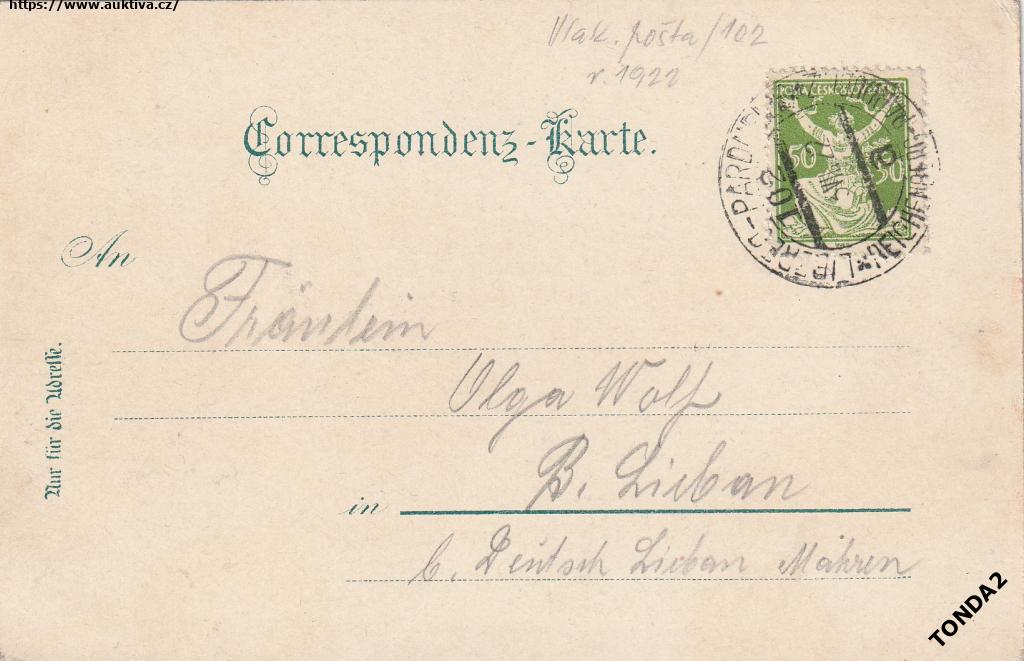 https://www.auktiva.cz/
Vlak. pošta/102
r. 1922
POŠTA ČESKOSLOVENSKÁ
50 50
LIBEREC-PARDUBICE
102
Correspondenz-Karte.
An
Fräulein
Olga Wolf
B. Lieban
in
b. Deutsch Lieban Mähren
Nur für die Adresse.
TONDA2